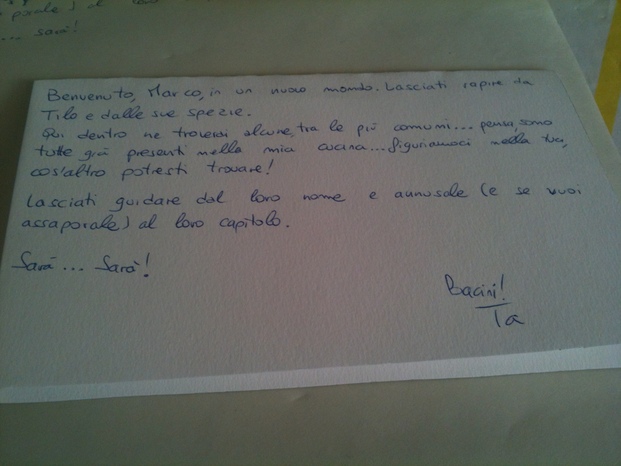 porale) al loro
... sarà!
Benvenuto, Marco, in un nuovo mondo. Lasciati rapire da
Tilo e dalle sue spezie.
Qui dentro ne troverai alcune, tra le più comuni... pensa, sono
tutte già presenti nella mia cucina... figuriamoci nella tua,
cos'altro potresti trovare!
Lasciati guidare dal loro nome e annusale (e se vuoi
assaporale) al loro capitolo.
Sarà... Sarà!
Bacini!
Ta